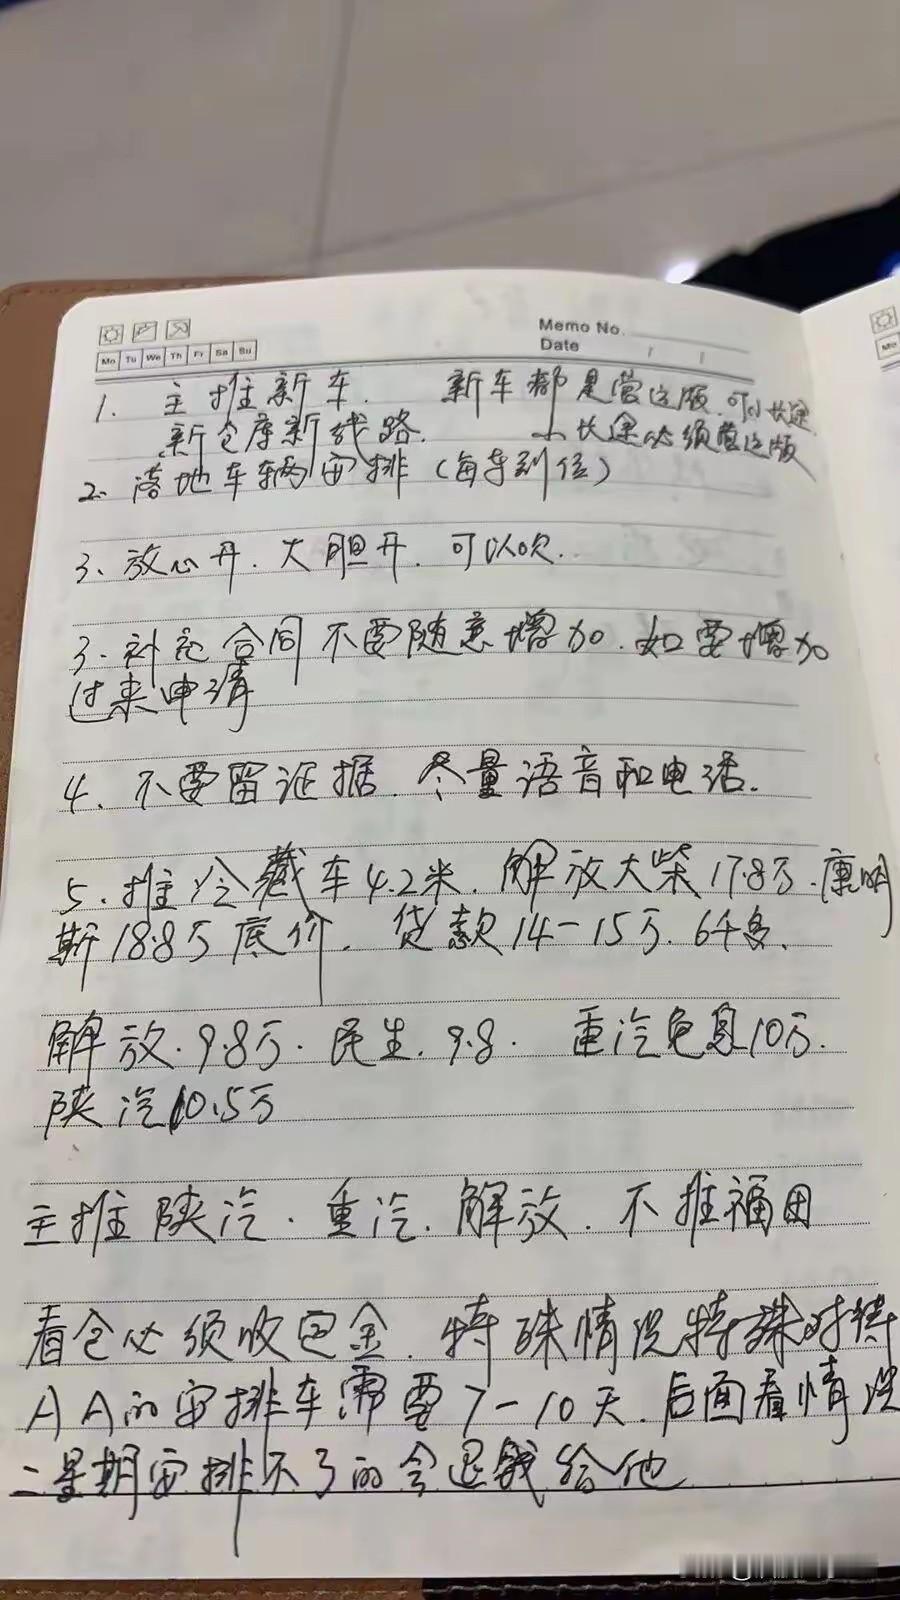 Memo No.
Date
Mo Tu We Th Fr Sa Su
1. 主推新车. 新车都是营运版.可小长途.
新仓库新线路. 小长途必须营运版
2. 落地车辆安排(每车到位)
3、放心开.大胆开.可以吹.
3.补充合同不要随意增加.如要增加
过来申请
4、不要留证据.尽量语音和电话.
5.推冷藏车4.2米.解放大柴17.8万.康明
斯18.8万底价.贷款14-15万.64多.
解放.9.8万.民生.9.8. 重汽 10万.
陕汽10.5万
主推陕汽.重汽.解放.不推福田
看仓必须收包金.特殊情况特殊对待
AA的安排车需要7-10天.后面看情况
二星期安排不了的会退钱给他